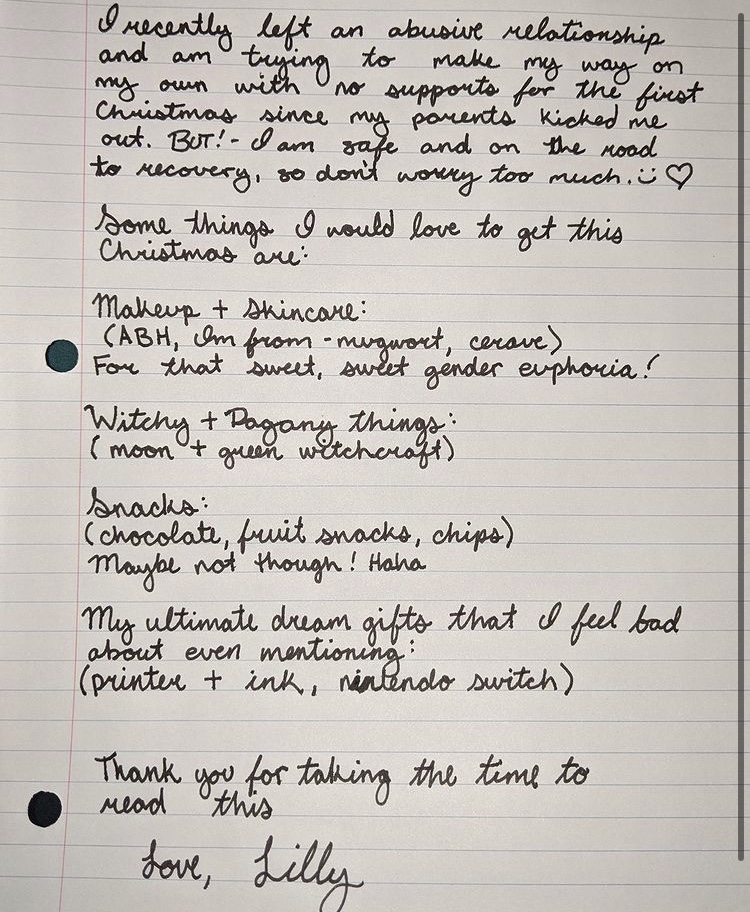 I recently left an abusive relationship
and am trying to make my way on
my own with no supports for the first
Christmas since my parents kicked me
out. BUT!- I am safe and on the road
to recovery, so don't worry too much. :) ♡
Some things I would love to get this
Christmas are:
Makeup + Skincare:
(ABH, Im from - mugwort, cerave)
For that sweet, sweet gender euphoria!
Witchy + Pagany things:
(moon + green witchcraft)
Snacks:
(chocolate, fruit snacks, chips)
Maybe not though! Haha
My ultimate dream gifts that I feel bad
about even mentioning:
(printer + ink, nintendo switch)
Thank you for taking the time to
read this
Love, Lilly